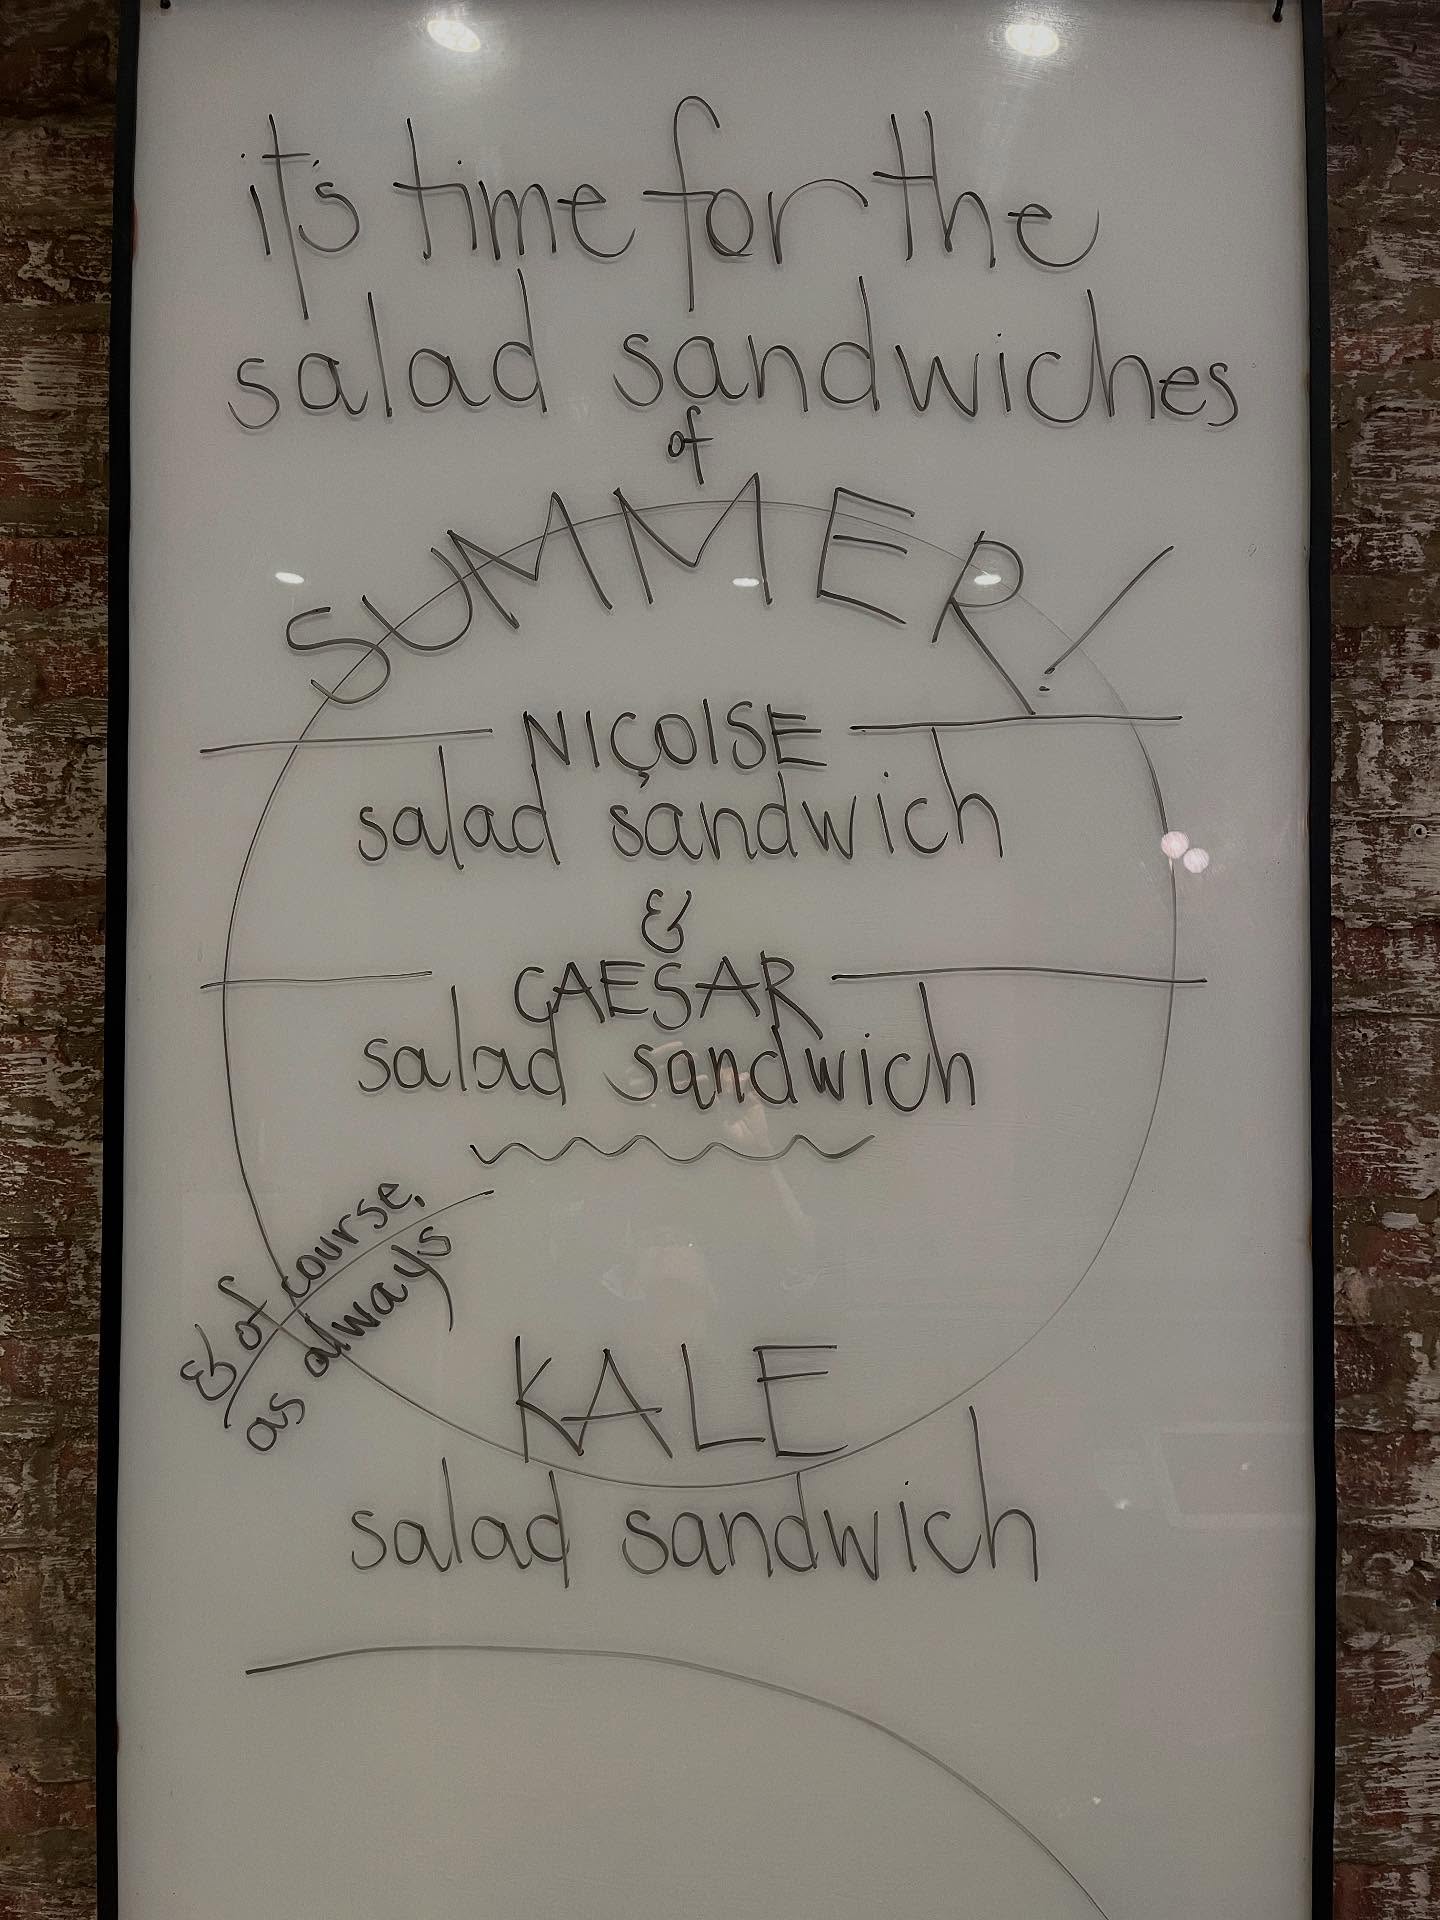 it's time for the
salad sandwiches
of
SUMMER!
NIÇOISE
salad sandwich
&
CAESAR
salad sandwich
& of course,
as always
KALE
salad sandwich